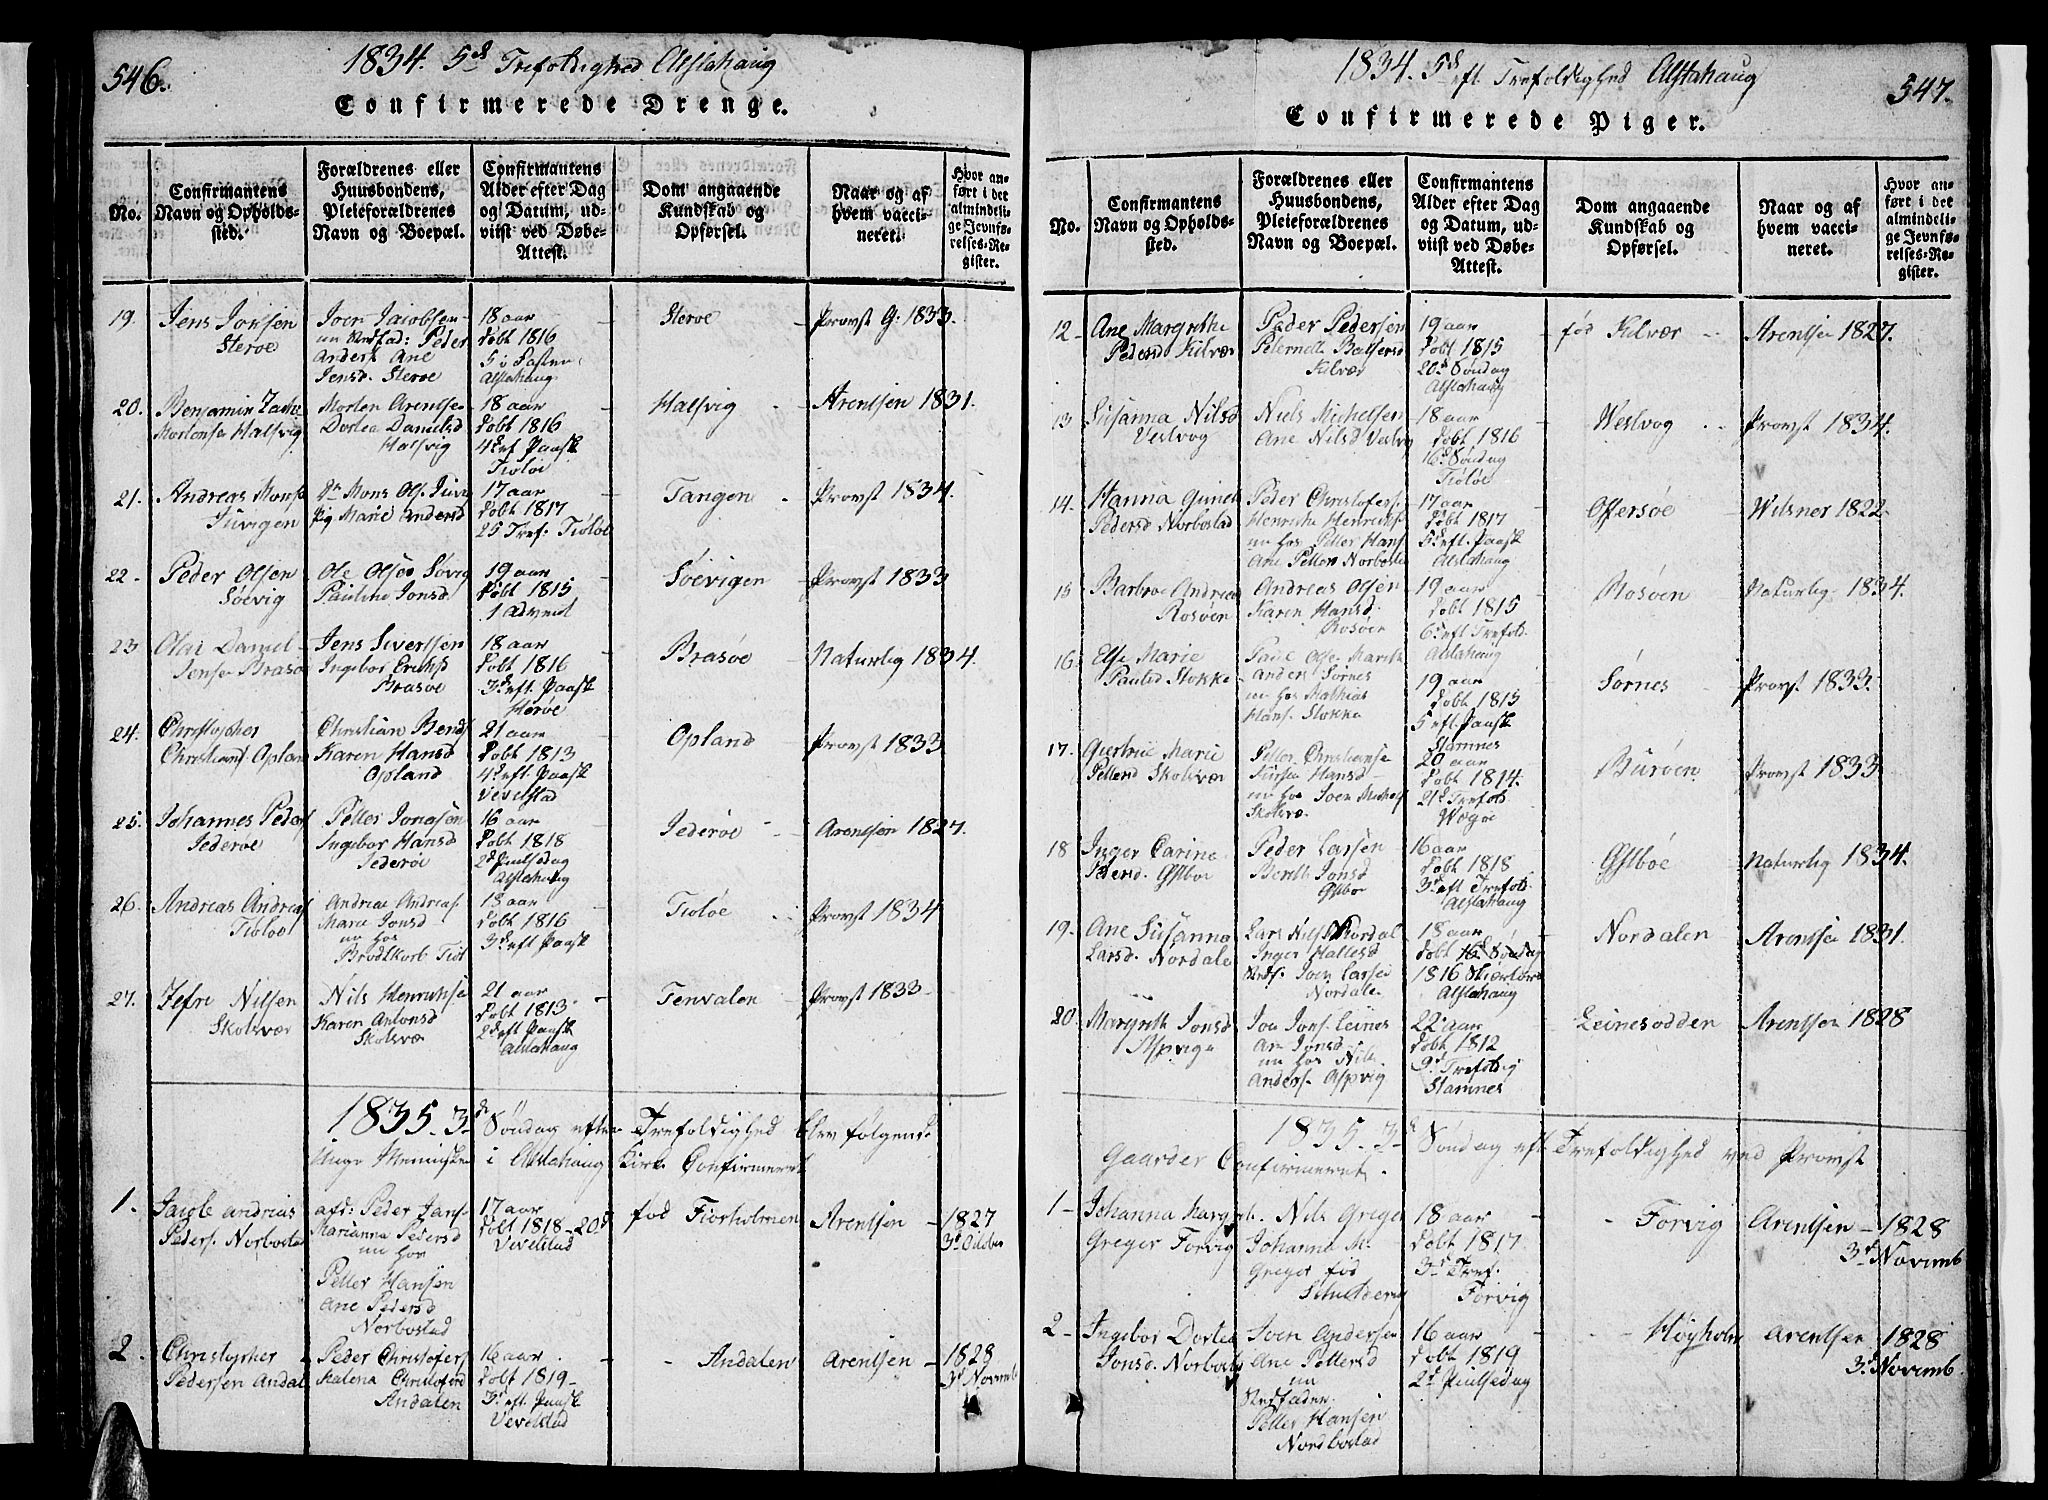 546.
1834. 5d Trefoldighed Alstahaug
Confirmerede Drenge.
No.
Confirmantens
Navn og Opholds-
sted.
Forældrenes eller
Huusbondens,
Pleieforældrenes
Navn og Boepæl.
Confirmantens
Alder efter Dag
og Datum, ud-
viist ved Døbe-
Attest.
Dom angaaende
Kundskab og
Opførsel.
Naar og af
hvem vacci-
neret.
Hvor an-
ført i det
almindeli-
ge Jevnfø-
relses-Re-
gister.
19. Jens Jonsen
Sterøe
Joen Jacobsen
Peder
Anders Ane
Jensd. Sterøe
18 aar
døbt 1816
5 i Fasten
Alstahaug
Sterøe
Provst G. 1833.
20. Benjamin Zach
Mortensen Halsvig
Morten Arentse
Dortea Danielsd
Halsvig
18 aar
døbt 1816
4d ef Paask
Tiøtøe
Halsvig
Arentsen 1831.
21. Andreas Monse
Juvigen
Mons Ols. Juvig
Pig Marie Andersd
17 aar
døbt 1817
25 Tref. Tiøtøe
Tangen
Provst 1834.
22. Peder Olsen
Søevig
Ole Olsen Søvig
Pauline Jonsd.
19 aar
døbt 1815
1 Advent
Søevigen
Provst 1833
23 Olai Daniel
Jensen Brasøe
Jens Sivertsen
Ingebor Eriksd
Brasøe
18 aar
døbt 1816
3d eft. Paask
Herøe
Brasøe
Naturlig 1834.
24. Christopher
Christians Oplan
Christian Bends
Karen Hansd
Opland
21 aar
døbt 1813
4d eft. Paask
Vevelstad
Opland
Provst 1833
25. Johannes Peders
Jederøe
Petter Jonasen
Ingebor Hansd
Jederøe
16 aar
døbt 1818
2d Pintsedag
Alstahaug
Jederøe
Arentsen 1827.
26. Andreas Andreas
Tiøtøe
Andreas Andreas.
Marie Jonsd
nu hos
Brodtkorb Tiøt
18 aar
døbt 1816
3d eft Paask
Tiøtøe
Provst 1834
27. Zefri Nilsen
Skolsvær
Nils Henriksen
Karen Antonsd
Skolsvæ
21 aar
døbt 1813
2d eft Paask
Alstahaug
Tenvalen
Provst 1833
1835. 3d Søndag efter Trefoldighed blev følgende
unge Mennisker i Alstahaug Kirke Confirmeret
1. Jacob Andreas
Peders. Norbostad
afd: Peder Jans.
Marianna Pedersd
nu hos
Petter Hansen
Ane Pedersd
Norbostad
17 aar
døbt 1818 20d
Vevelstad
fød Fiorholmen
Arentsen
1827
3d October
2. Christopher
Pedersen Andal
Peder Christofers
Malena Christoferd
Andalen
16 aar
døbt 1819
3d eft Paask
Vevelstad
Andalen
Arentsen
1828
3d Novemb
547.
1834. 5d eft Trefoldighed Alstahaug
Confirmerede Piger.
No.
Confirmantens
Navn og Opholds-
sted.
Forældrenes eller
Huusbondens,
Pleieforældrenes
Navn og Boepæl.
Confirmantens
Alder efter Dag
og Datum, ud-
viist ved Døbe-
Attest.
Dom angaaende
Kundskab og
Opførsel.
Naar og af
hvem vacci-
neret.
Hvor an-
ført i det
almindeli-
ge Jevnfø-
relses-Re-
gister.
12. Ane Margrethe
Pedersd Kilvær
Peder Pedersen
Peternelle Baltsersd
Kilvær
19 aar
døbt 1815
20d Søndag
Alstahaug
fød Kilvær
Arentsen 1827.
13 Susanna Nilsd
Vestvog
Niels Michelsen
Ane Nilsd Vestvog
18 aar
døbt 1816
16d Søndag
Tiøtøe
Westvog
Provst 1834.
14. Hanna
Pedersd Norbostad
Peder Christofers
Henrikke Henriks
nu hos Petter Hans
Ane Petters Norbosta
17 aar
døbt 1817
5d eft. Paask
Alstahaug
Offersøe
Wilsner 1822
15 Barbroe Andreas
Rosøen
Andreas Olsen
Karen Hansd.
Rosøen
19 aar
døbt 1815
6d eft Trefold.
Alstahaug
Rosøen
Naturlig 1834.
16. Else Marie
Paulsd Stokke
Paul Olsen
Anders Sørnes
nu hos Mathias
Hans. Stokke
19 aar
døbt 1815
5 eft. Paask
Stamnes
Sørnes
Provst 1833.
17. Giertrue Marie
Pettersd Skolsvær
Petter Christianse
Hansd
nu hos Joen Michels
Skolsvæ.
20 aar
døbt 1814.
21d Trefold.
Wegøe
Burøen
Provst 1833
18 Inger Carina
Pedersd. Østboe
Peder Larsen
Berith Jonsd
Østboe
16 aar
døbt 1818
3d eft Trefold.
Alstahaug
Østboe
Naturlig 1834.
19. Ane Susanna
Larsd. Nordale
Lars Nils. Nordal
Inger Hallesd
Joen Larsen
Nordale
18 aar
døbt 16d Søndag
1816
Alstahaug
Nordalen
Arentsen 1831.
20. Margreth Jonsd
Aspvigen
Joen Jons. Leines
An Jonsd
nu hos Nils
Anders. Aspvig
22 aar
døbt 1812
9d Trefoldig
Stamnes
Leinesodden
Arentsen 1828
1835. 3d Søndag eft Trefoldighed ved Provst
Gaarder Confirmeret.
1 Johanna Margret.
Greger Forvig
Nils Greger
Johanna M.
Greger fød
18 aar
døbt 1817
3d Tref.
Forvig
Forvig
Arentsen 1828
3d Novemb
2 Ingebor Dortea
Jonsd. Norbostad
Joen Andersen
Ane Pettersd
nu
Stedfader
Petter Hansen
Nordbostad
16 aar
døbt 1819
2d Pintsedag
Høyholm
Arentsen 1828
3d Novemb.